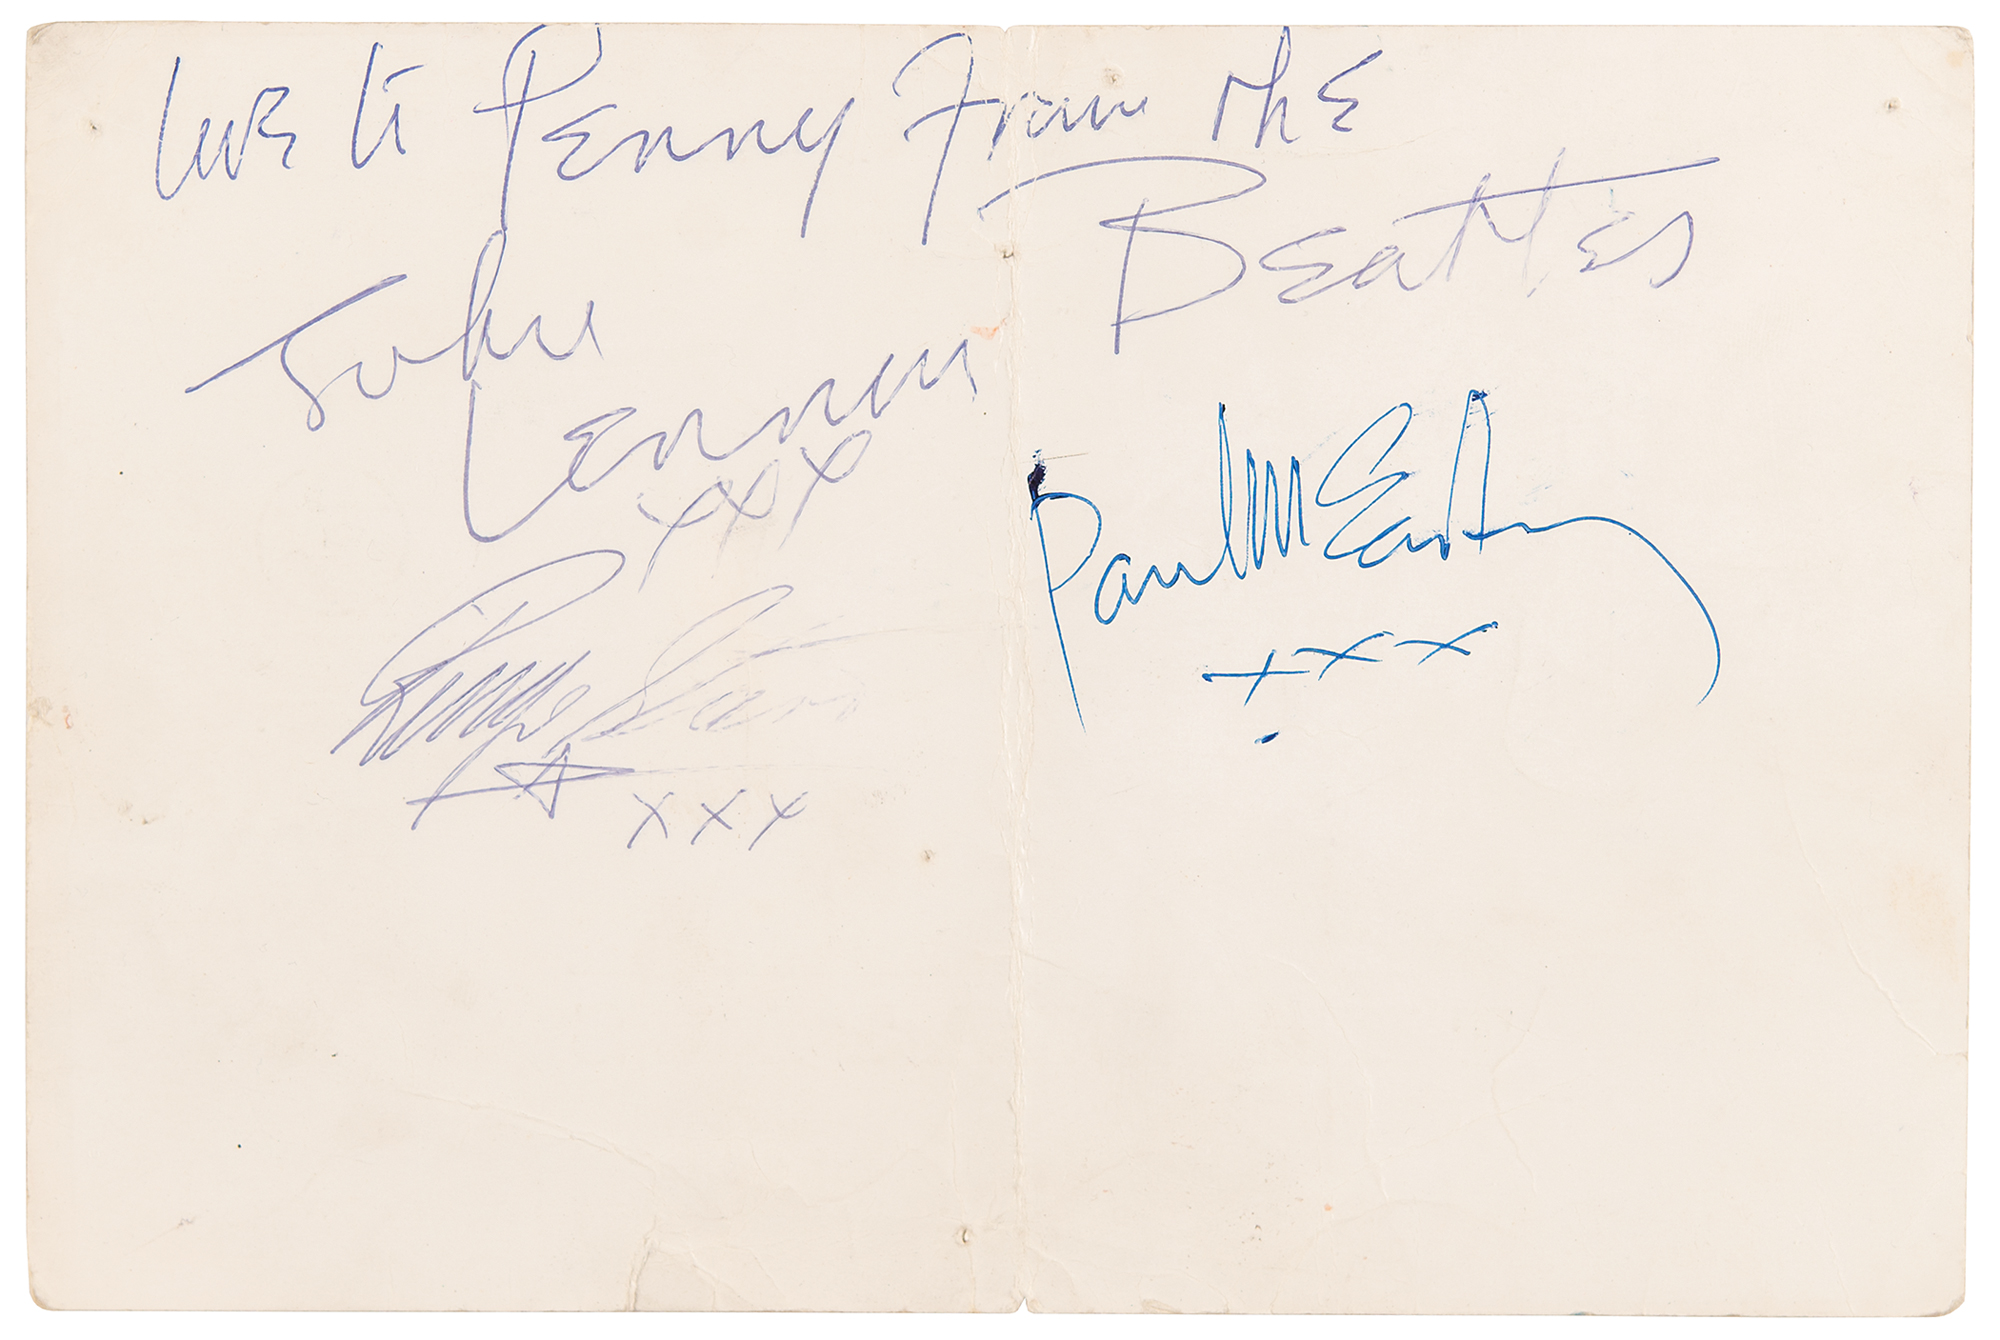 love to Penny from the
Beatles
John
Lennon
xxx
Paul McCartney
xxx
Ringo Starr
xxx